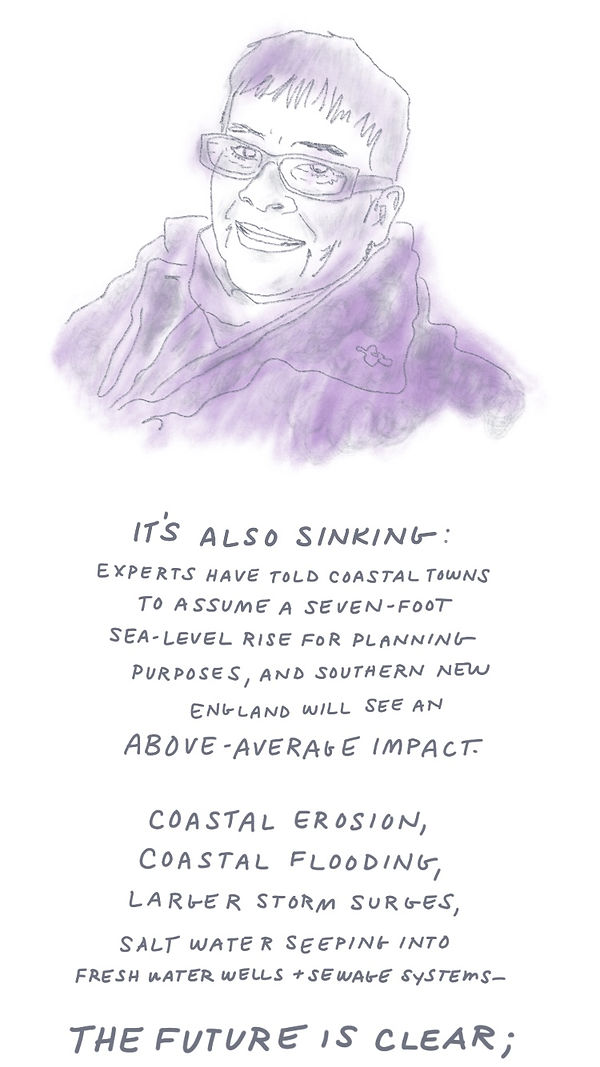 IT'S ALSO SINKING:
EXPERTS HAVE TOLD COASTAL TOWNS
TO ASSUME A SEVEN-FOOT
SEA-LEVEL RISE FOR PLANNING
PURPOSES, AND SOUTHERN NEW
ENGLAND WILL SEE AN
ABOVE-AVERAGE IMPACT.
COASTAL EROSION,
COASTAL FLOODING,
LARGER STORM SURGES,
SALT WATER SEEPING INTO
FRESH WATER WELLS + SEWAGE SYSTEMS—
THE FUTURE IS CLEAR;